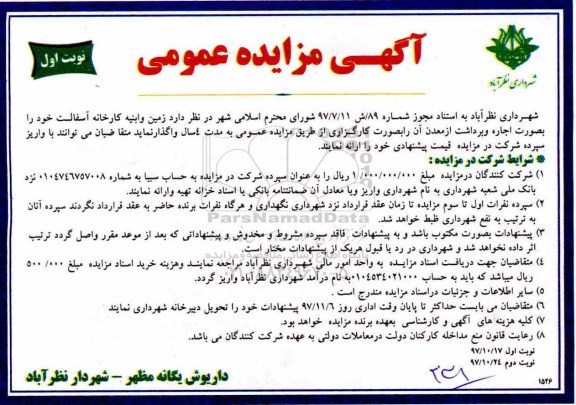 آگهی مزایده عمومی
نوبت اول
شهرداری نظرآباد
شهرداری نظرآباد به استناد مجوز شماره ۸۹/ش ۹۷/۷/۱۱ شورای محترم اسلامی شهر در نظر دارد زمین وابنیه کارخانه آسفالت خود را
بصورت اجاره وبرداشت ازمعدن آن رابصورت کارگزاری از طریق مزایده عمومی به مدت ٤سال واگذارنماید متقا ضیان می توانند با واریز
سپرده شرکت در مزایده قیمت پیشنهادی خود را ارائه نمایند.
* شرایط شرکت در مزایده :
۱) شرکت کنندگان درمزایده مبلغ ۱/۰۰۰/۰۰۰/۰۰۰ ریال را به عنوان سپرده شرکت در مزایده به حساب سیبا به شماره ۰۱۰٤۷٤٦۷۵۷۰۰۸ نزد
بانک ملی شعبه شهرداری به نام شهرداری واریز ویا معادل آن ضمانتنامه بانکی یا اسناد خزانه تهیه وارائه نمایند.
۲) سپرده نفرات اول تا سوم مزایده تا زمان عقد قرارداد نزد شهرداری نگهداری و هرگاه نفرات برنده حاضر به عقد قرارداد نگردند سپرده آنان
به ترتیب به نفع شهرداری ظبط خواهد شد.
۳) پیشنهادات بصورت مکتوب باشد و به پیشنهادات فاقد سپرده مشروط و مخدوش و پیشنهاداتی که بعد از موعد مقرر واصل گردد ترتیب
اثر داده نخواهد شد و شهرداری در رد یا قبول هریک از پیشنهادات مختار است.
٤) متقاضیان جهت دریافت اسناد مزایده به واحد امور مالی شهرداری نظرآباد مراجعه نمایند وهزینه خرید اسناد مزایده مبلغ ۵۰۰/۰۰۰
ریال میباشد که باید به حساب ۰۱۰٤۵۳٤۰۲۱۰۰۰به نام درآمد شهرداری نظرآباد واریز گردد.
۵) سایر اطلاعات و جزئیات دراسناد مزایده مندرج است .
٦) متقاضیان می بایست حداکثر تا پایان وقت اداری روز ۹۷/۱۱/٦ پیشنهادات خود را تحویل دبیرخانه شهرداری نمایند
۷) کلیه هزینه های آگهی و کارشناسی بعهده برنده مزایده خواهد بود.
۸) رعایت قانون منع مداخله کارکنان دولت درمعاملات دولتی به عهده شرکت کنندگان می باشد.
نوبت اول ۹۷/۱۰/۱۷
نوبت دوم ۹۷/۱۰/۲٤
داریوش یگانه مظهر – شهردار نظرآباد
۱۵۲٦
ParsNamadData